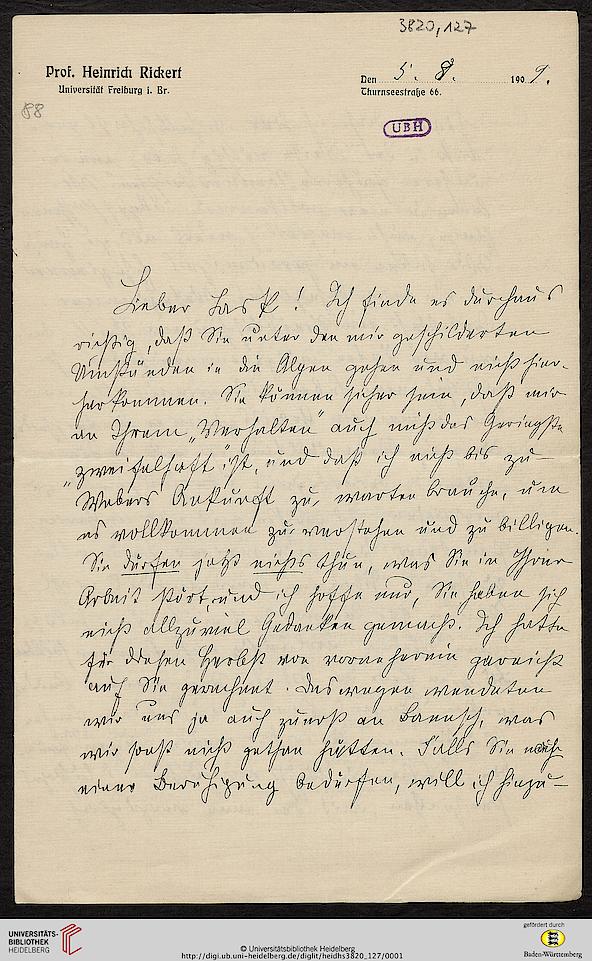 3820,127
Prof. Heinrich Rickert
Universität Freiburg i. Br.
Den 5. 8. 1909.
Thurnseestraße 66.
88
UBH
Lieber Lask! Ich finde es durchaus
richtig, daß Sie unter den mir geschilderten
Umständen in die Alpen gehen und nicht hier-
her kommen. Sie können sicher sein, daß mir
an Ihrem „Verhalten" auch nicht das Geringste
„zweifelhaft" ist, und daß ich nicht bis zu
Webers Ankunft zu warten brauche, um
es vollkommen zu verstehen und zu billigen.
Sie dürfen jetzt nichts thun, was Sie in Ihrer
Arbeit stört, und ich hoffe nur, Sie haben sich
nicht allzuviel Gedanken gemacht. Ich hatte
für diesen Herbst von vorneherein garnicht
auf Sie gerechnet. Deswegen wendeten
wir uns ja auch zuerst an Baensch, was
wir sonst nicht gethan hätten. Falls Sie noch
einer Beruhigung bedürfen, will ich hinzu-
UNIVERSITÄTS-
BIBLIOTHEK
HEIDELBERG
© Universitätsbibliothek Heidelberg
http://digi.ub.uni-heidelberg.de/diglit/heidhs3820_127/0001
gefördert durch
Baden-Württemberg